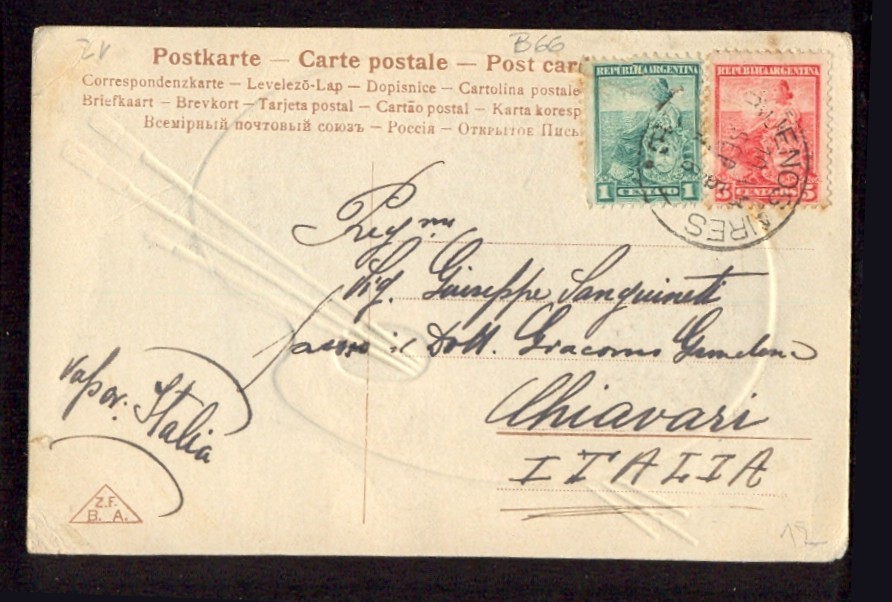 2V
B66
Postkarte — Carte postale — Post car
Correspondenzkarte – Levelező-Lap – Dopisnice – Cartolina postale
Briefkaart – Brevkort – Tarjeta postal – Cartão postal – Karta koresp
Всемірный почтовый союзъ – Россія – Открытое Пись
REPUBLICA ARGENTINA
1 CENTAVO 1
REPUBLICA ARGENTINA
5 CENTAVOS 5
BUENOS AIRES
SEP
Sig. Giuseppe Sanguineti
Dott. Giacomo
Chiavari
ITALIA
vapor. Italia
Z.F.
B. A.
12